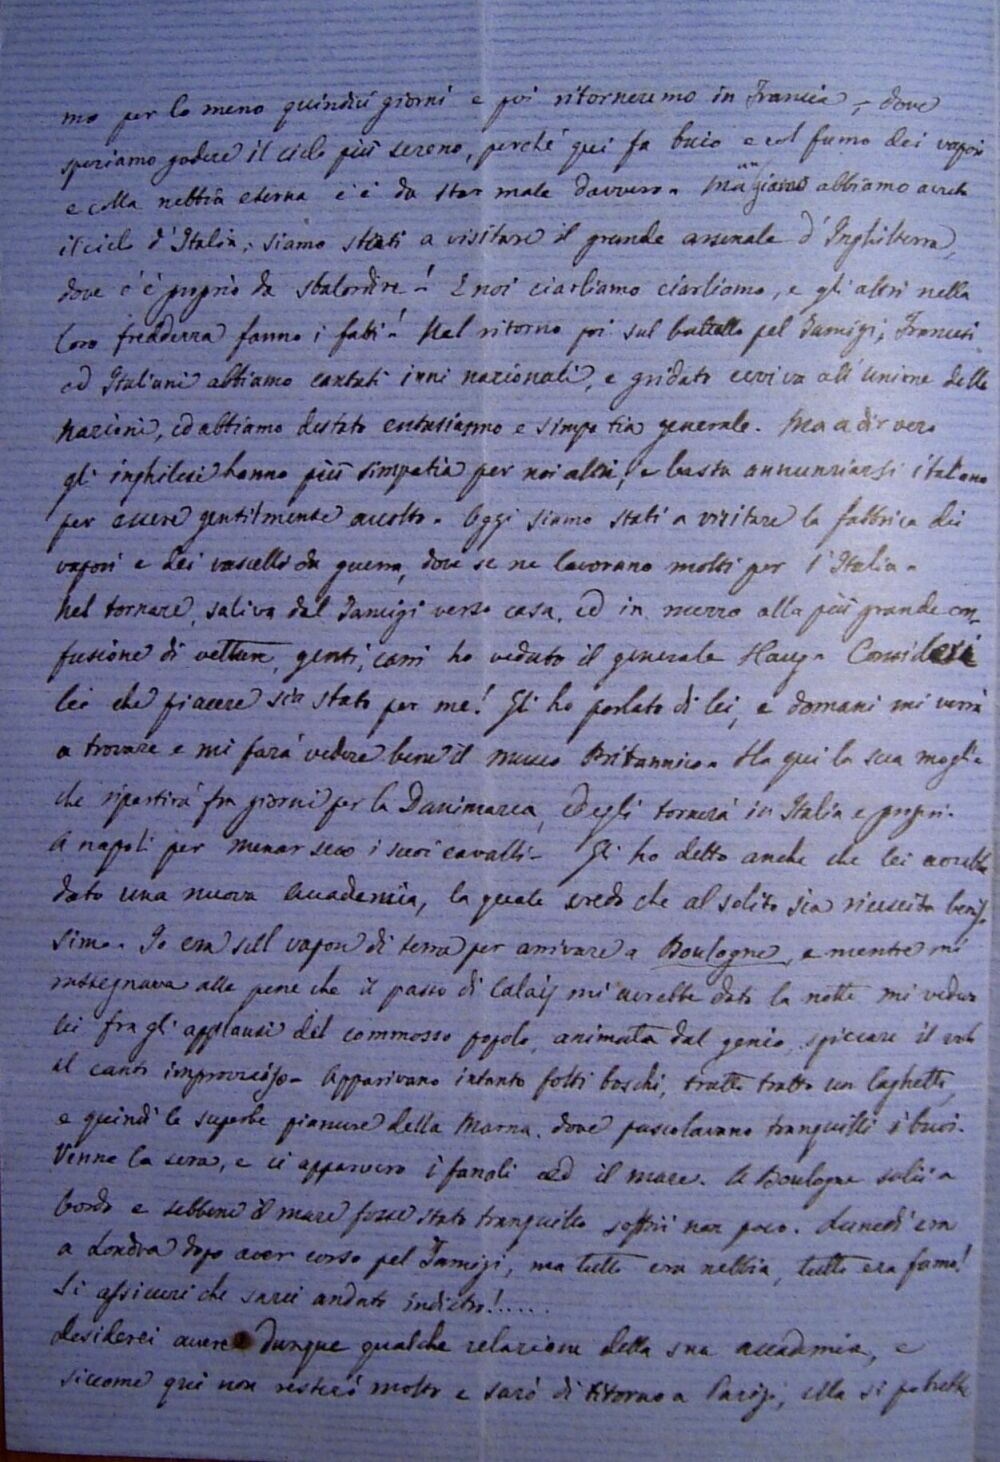 mo per lo meno quindici giorni e poi ritorneremo in Francia, dove
speriamo godere il cielo più sereno, perché qui fa buio e col fumo dei vapori
e colla nebbia eterna c'è da star male davvero. Mangiamo abbiamo avuto
il cielo d'Italia; siamo stati a visitare il grande arsenale d'Inghilterra,
dove c'è proprio da sbalordire! E noi ciarliamo ciarliamo, e gli altri nella
loro freddezza fanno i fatti! Nel ritorno poi sul battello pel Tamigi, Francesi
ed Italiani abbiamo cantati inni nazionali, e gridato evviva all'unione delle
nazioni, ed abbiamo destato entusiasmo e simpatia generale. Ma a dir vero
gli inghilesi hanno più simpatia per noi altri, e basta annunziarsi italiano
per essere gentilmente accolto. Oggi siamo stati a visitare la fabbrica dei
vapori e dei vascelli da guerra, dove se ne lavorano molti per l'Italia.
Nel tornare, saliva dal Tamigi verso casa, ed in mezzo alla più grande con-
fusione di vetture, genti, carri ho veduto il generale Haug. Consideri
lei che piacere sia stato per me! Gli ho parlato di lei, e domani mi verrà
a trovare e mi farà vedere bene il museo Britannico. Ha qui la sua moglie
che ripartirà fra giorni per la Danimarca, ed egli tornerà in Italia e propri.
a napoli per menar seco i suoi cavalli. Gli ho detto anche che lei avrebbe
dato una nuova Accademia, la quale credo che al solito sia riuscita benis
simo. Io era sul vapor di terra per arrivare a Boulogne, e mentre mi
rassegnava alle pene che il passo di Calais mi avrebbe dato la notte mi vedeva
lei fra gli applausi del commosso popolo, animata dal genio, spiccare il volo
al canto improvviso. Apparivano intanto folti boschi, tratto tratto un laghetto,
e quindi le superbe pianure della Marna, dove pascolavano tranquilli i buoi.
Venne la sera, e ci apparvero i fanali ed il mare. A Boulogne salii a
bordo e sebbene il mare fosse stato tranquillo soffrii non poco. Lunedì era
a Londra dopo aver corso pel Tamigi, ma tutto era nebbia, tutto era fumo!
Si assicuri che sarei andato indietro!.....
Desiderei avere dunque qualche relazione della sua accademia, e
siccome qui non resterò molto e sarò di ritorno a Parigi, ella si potrebbe